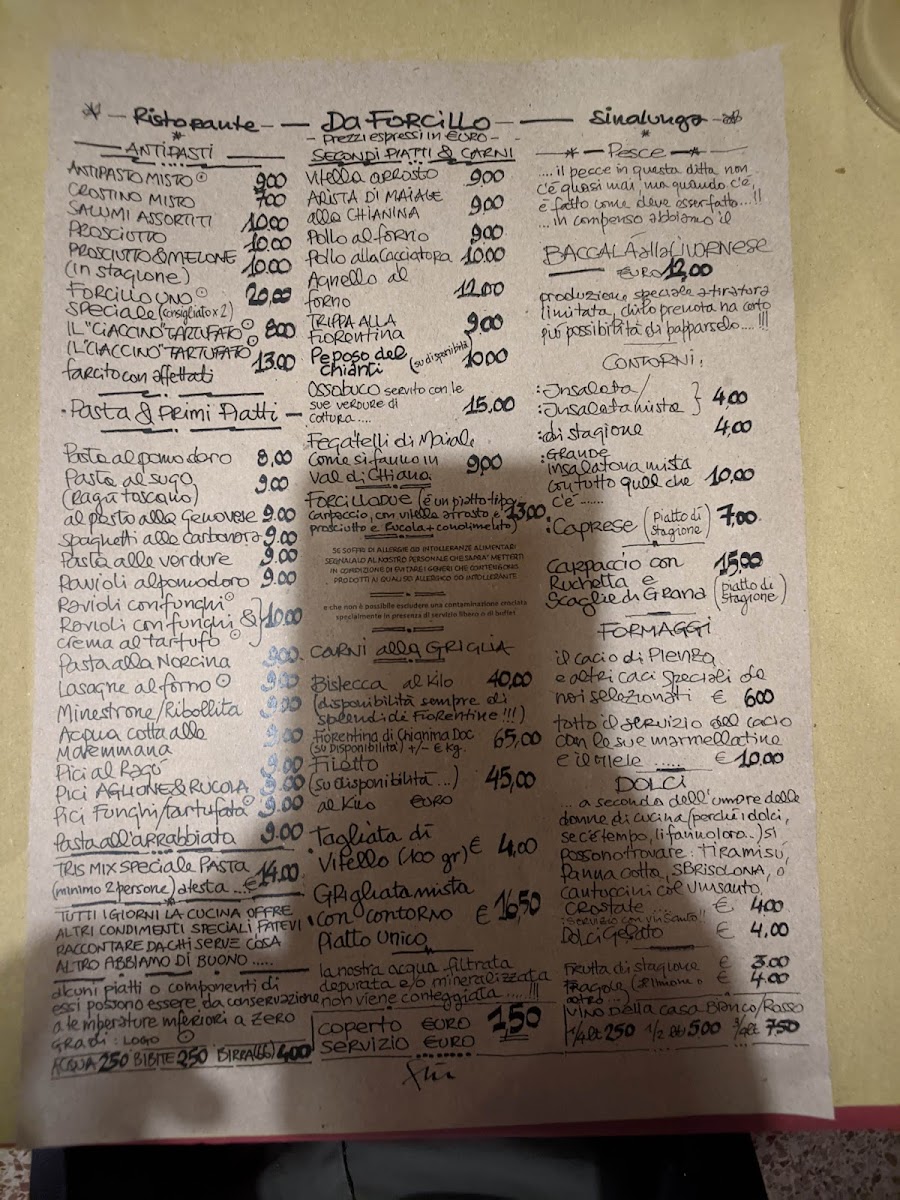 Ristorante - Da FORCILLO - Sinalunga
- Prezzi espressi in €URO -
ANTIPASTI
ANTIPASTO MISTO 9,00
CROSTINO MISTO 7,00
SALUMI ASSORTITI 10.00
PROSCIUTTO 10.00
PROSCIUTTO & MELONE 10.00
(in stagione)
FORCILLO UNO 20,00
SPECIALE (consigliato x 2)
IL "CIACCINO" TARTUFATO 8,00
IL "CIACCINO" TARTUFATO 13.00
farcito con affettati
Pasta & Primi Piatti
Pasta al pomodoro 8,00
Pasta al sugo 9.00
(Ragù toscano)
al pesto alla Genovese 9.00
spaghetti alla carbonara 9.00
Pasta alle verdure 9.00
Ravioli al pomodoro 9.00
Ravioli con funghi
Ravioli con funghi & 10.00
crema al tartufo
Pasta alla Norcina 9.00
Lasagne al forno 9.00
Minestrone/Ribollita 9.00
Acqua cotta alla 9.00
Maremmana
Pici al Ragù 9.00
Pici AGLIONE & RUCOLA 9.00
Pici Funghi/tartufata 9.00
Pasta all'arrabbiata 9.00
TRIS MIX SPECIALE PASTA
(minimo 2 persone) a testa ... € 14.00
TUTTI I GIORNI LA CUCINA OFFRE
ALTRI CONDIMENTI SPECIALI FATEVI
RACCONTARE DA CHI SERVE COSA
ALTRO ABBIAMO DI BUONO .....
alcuni piatti o componenti di
essi possono essere da conservazione
a temperature inferiori a zero
gradi: LOGO
ACQUA 250 BIBITE 250 BIRRA(66) 400
SECONDI PIATTI & CARNI
Vitella arrosto 9,00
ARISTA DI MAIALE
alla CHIANINA 9,00
Pollo al forno 9,00
Pollo alla Cacciatora 10.00
Agnello al
forno 12.00
TRIPPA ALLA 9,00
FIORENTINA
Peposo del (su disponibilità) 10.00
Chianti
Ossobuco servito con le
sue verdure di 15,00
cottura ....
Fegatelli di Maiale
Come si fanno in 9,00
Val di Chiana
FORCILLO DUE (è un piatto tipo
carpaccio, con vitella arrosto e 13.00
prosciutto e Rucola + condimento)
SE SOFFRI DI ALLERGIE OD INTOLLERANZE ALIMENTARI
SEGNALALO AL NOSTRO PERSONALE CHE SAPRA' METTERTI
IN CONDIZIONE DI EVITARE I GENERI CHE CONTENGONO
PRODOTTI AI QUALI SEI ALLERGICO OD INTOLLERANTE
e che non è possibile escludere una contaminazione crociata
specialmente in presenza di servizio libero o di buffet
CARNI alla GRIGLIA
Bistecca al Kilo 40,00
(disponibilità sempre di
splendide Fiorentine !!!)
Fiorentina di Chianina Doc 65,00
(su DISPONIBILITÀ) +/- € kg.
Filetto
(su disponibilità...) 45,00
al Kilo €URO
Tagliata di
Vitello (100 gr) € 4,00
Grigliata mista
con contorno € 16,50
Piatto Unico
la nostra acqua filtrata
depurata e/o mineralizzata
non viene conteggiata ....!!!
COPERTO €URO 1,50
SERVIZIO €URO
Pesce
.... il pesce in questa ditta non
c'è quasi mai, ma quando c'è,
è fatto come deve esser fatto ....!!
... in compenso abbiamo il
BACCALÀ alla LIVORNESE
€URO 12,00
produzione speciale a tiratura
limitata, chi lo prenota ha certo
più possibilità di papparselo....!!!
CONTORNI:
: Insalata/
: Insalata mista } 4,00
: di stagione 4,00
: GRANDE
insalatona mista 10,00
con tutto quel che
c'è .......
: CAPRESE (Piatto di stagione) 7,00
Carpaccio con 15,00
Ruchetta e
Scaglie di Grana (Piatto di stagione)
FORMAGGI
il cacio di Pienza
e altri caci speciali da
noi selezionati € 6,00
tutto il servizio del cacio
con le sue marmellatine
e il Miele ..... € 10,00
DOLCI
... a seconda dell'umore delle
donne di cucina (perchè i dolci,
se c'è tempo, li fanno loro..) si
possono trovare: TIRAMISÙ,
Panna Cotta, SBRISOLONA, o
Cantuccini col Vinsanto,
Crostate ... € 4.00
: Servizio con VinSanto!!
Dolci Gelato € 4,00
Frutta di stagione € 3.00
Fragole (limone o € 4.00
altro...)
VINO Della casa Bianco/Rosso
1/4 lt 250 1/2 lt 5,00 3/4 lt 7,50